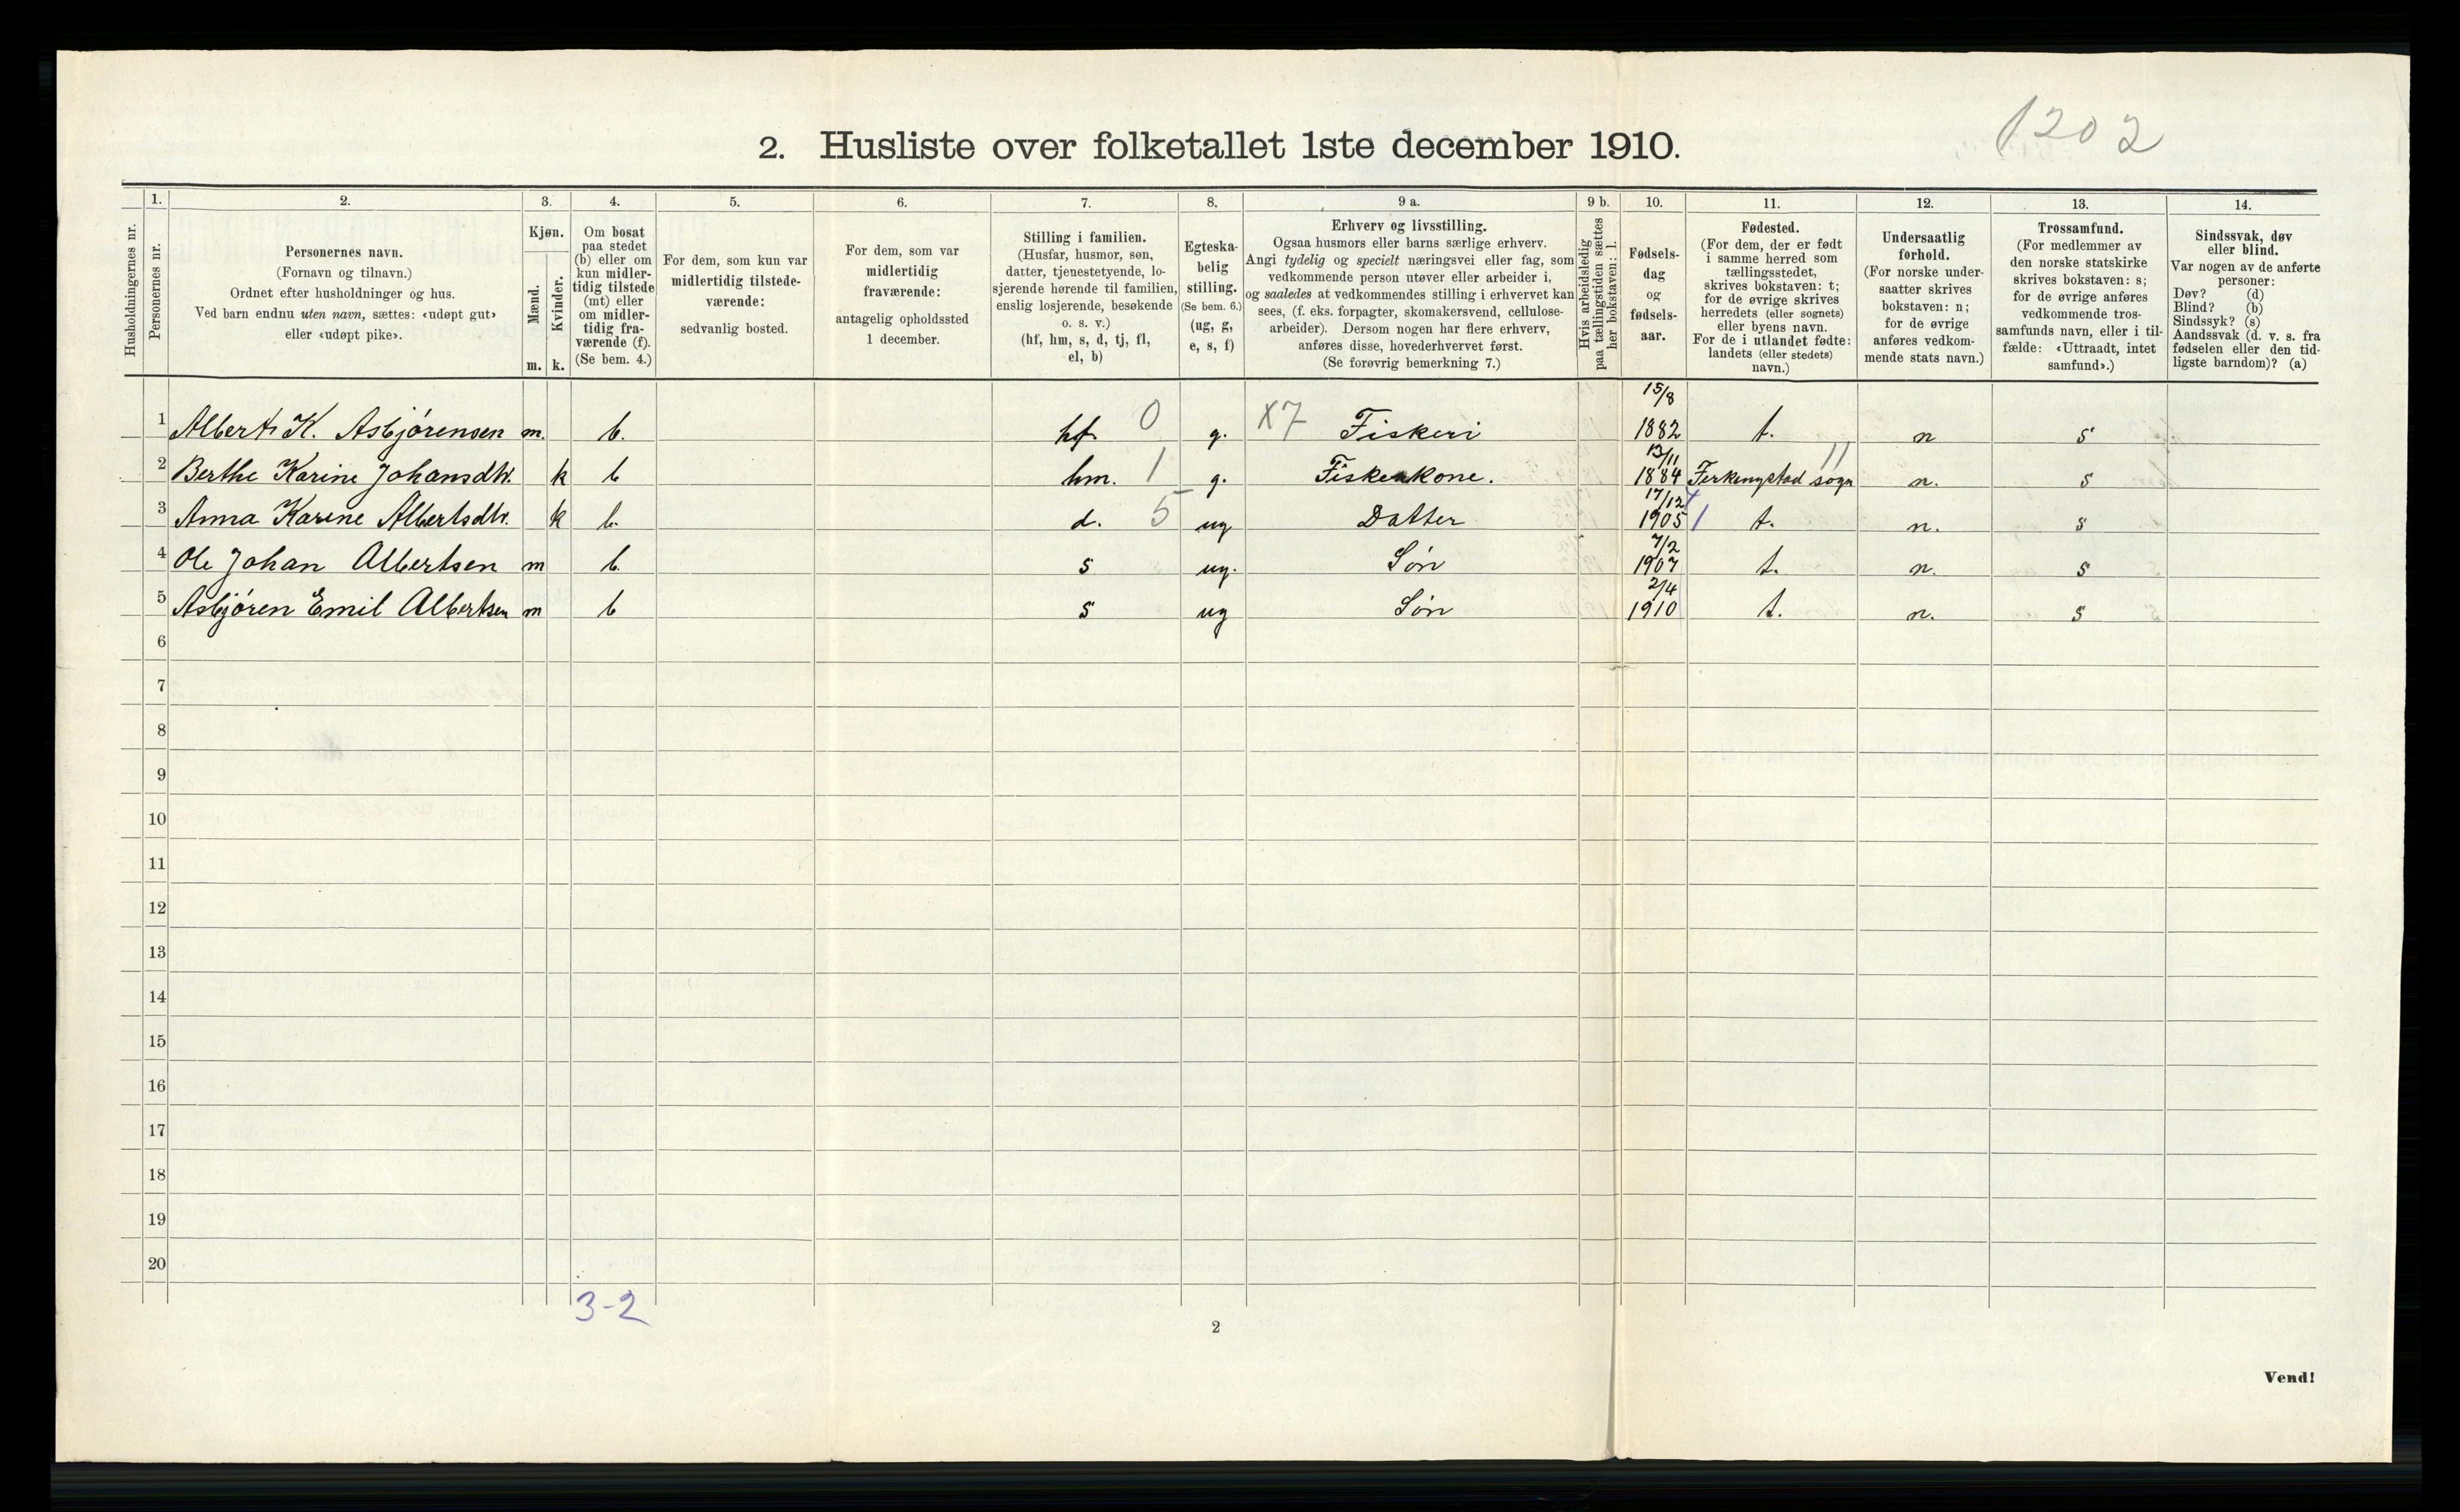 1202
2. Husliste over folketallet 1ste december 1910.
Husholdningernes nr.
1.
Personernes nr.
2.
Personernes navn.
(Fornavn og tilnavn.)
Ordnet efter husholdninger og hus.
Ved barn endnu uten navn, sættes: «udøpt gut»
eller «udøpt pike».
3.
Kjøn.
Mænd.
Kvinder.
m. k.
4.
Om bosat
paa stedet
(b) eller om
kun midler-
tidig tilstede
(mt) eller
om midler-
tidig fra-
værende (f).
(Se bem. 4.)
5.
For dem, som kun var
midlertidig tilstede-
værende:
sedvanlig bosted.
6.
For dem, som var
midlertidig
fraværende:
antagelig opholdssted
1 december.
7.
Stilling i familien.
(Husfar, husmor, søn,
datter, tjenestetyende, lo-
sjerende hørende til familien,
enslig losjerende, besøkende
o. s. v.)
(hf, hm, s, d, tj, fl,
el, b)
8.
Egteska-
belig
stilling.
(Se bem. 6.)
(ug, g,
e, s, f)
9 a.
Erhverv og livsstilling.
Ogsaa husmors eller barns særlige erhverv.
Angi tydelig og specielt næringsvei eller fag, som
vedkommende person utøver eller arbeider i,
og saaledes at vedkommendes stilling i erhvervet kan
sees, (f. eks. forpagter, skomakersvend, cellulose-
arbeider). Dersom nogen har flere erhverv,
anføres disse, hovederhvervet først.
(Se forøvrig bemerkning 7.)
9 b.
Hvis arbeidsledig
paa tællingstiden sættes
her bokstaven: l.
10.
Fødsels-
dag
og
fødsels-
aar.
11.
Fødested.
(For dem, der er født
i samme herred som
tællingsstedet,
skrives bokstaven: t;
for de øvrige skrives
herredets (eller sognets)
eller byens navn.
For de i utlandet fødte:
landets (eller stedets)
navn.)
12.
Undersaatlig
forhold.
(For norske under-
saatter skrives
bokstaven: n;
for de øvrige
anføres vedkom-
mende stats navn.)
13.
Trossamfund.
(For medlemmer av
den norske statskirke
skrives bokstaven: s;
for de øvrige anføres
vedkommende tros-
samfunds navn, eller i til-
fælde: «Uttraadt, intet
samfund».)
14.
Sindssvak, døv
eller blind.
Var nogen av de anførte
personer:
Døv? (d)
Blind? (b)
Sindssyk? (s)
Aandssvak (d. v. s. fra
fødselen eller den tid-
ligste barndom)? (a)
15/8
1 Albert K. Asbjørensen m. b. hf. 0 g. X7 Fiskeri 1882 t. n s
13/11
2 Berthe Karine Johansdtr. k b hm. 1 g. Fiskerkone. 1884 Ferkingstad sogn 11 n. s
17/12
3 Anna Karine Albertsdtr. k b. d. 5 ug Datter 1905 1 t. n. s
7/2
4 Ole Johan Albertsen m b. s ug. Søn 1907 t. n. s
2/4
5 Asbjøren Emil Albertsen m b s ug Søn 1910 t. n. s
6
7
8
9
10
11
12
13
14
15
16
17
18
19
20
3-2
2
Vend!